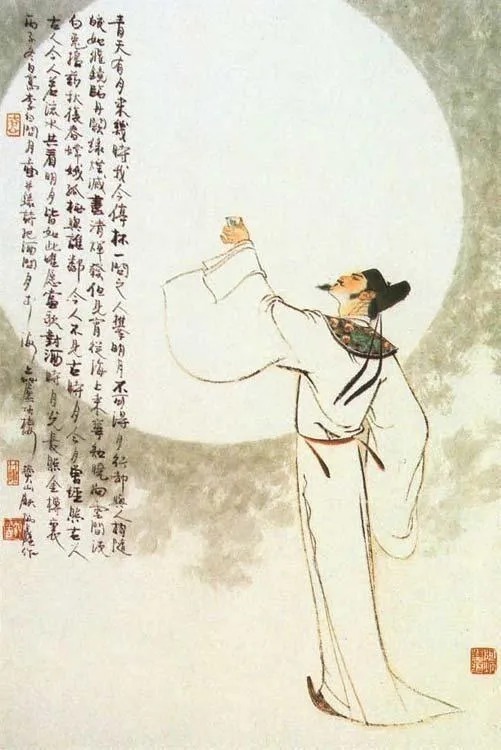 青天有月来幾時我今停杯一问之人攀明月不可得月行却與人相随
皎如飛鏡臨丹闕綠煙滅盡清輝發但見宵從海上來寧知曉向雲間没
白兔擣藥秋復春嫦娥孤栖與誰鄰今人不見古時月今月曾經照古人
古人今人若流水共看明月皆如此唯願當歌對酒時月光長照金樽裏
丙子冬日寫李白問月并錄詩把酒問月于海上樓作